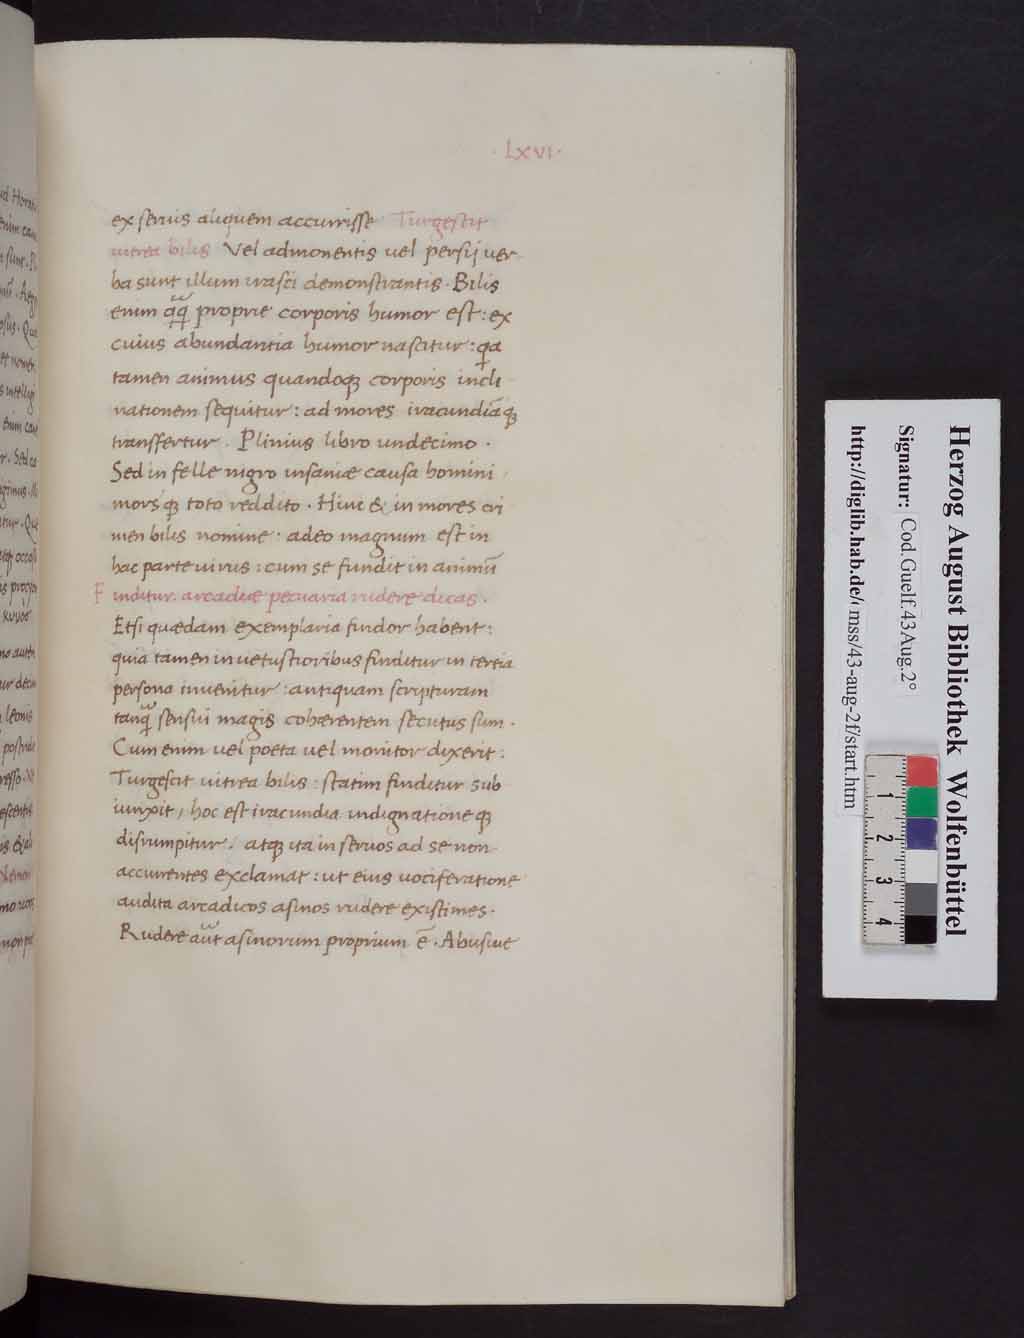 · Lxvi ·
ex seruis aliquem accurrisse Turgescit
uitrea bilis Vel admonentis uel persij uer-
ba sunt illum irasci demonstrantis. Bilis
enim q̃q̃ proprie corporis humor est: ex
cuius abundantia humor nascitur: qa
tamen animus quandoq; corporis incli-
nationem sequitur: ad mores iracundiãq;
transfertur. Plinius libro undecimo.
Sed in felle nigro insaniæ causa homini
morsq; toto reddito. Hinc & in mores cri
men bilis nomine: adeo magnum est in
hac parte uirus: cum se fundit in animũ
Finditur: arcadiæ pecuaria rudere dicas.
Etsi quædam exemplaria findor habent:
quia tamen in uetustioribus finditur in tertia
persona inuenitur: antiquam scripturam
tanq̃ sensui magis cohærentem secutus sum.
Cum enim uel poeta uel monitor dixerit:
Turgescit uitrea bilis: statim finditur sub
iunxit, hoc est iracundia indignationeq;
disrumpitur. atq; ita in seruos ad se non
accurrentes exclamat: ut eius uociferatione
audita arcadicos asinos rudere existimes.
Rudere aũt asinorum proprium ẽ. Abusiue
Herzog August Bibliothek Wolfenbüttel
Signatur: Cod.Guelf.43Aug.2°
http://diglib.hab.de/ mss/43-aug-2f/start.htm
1 2 3 4